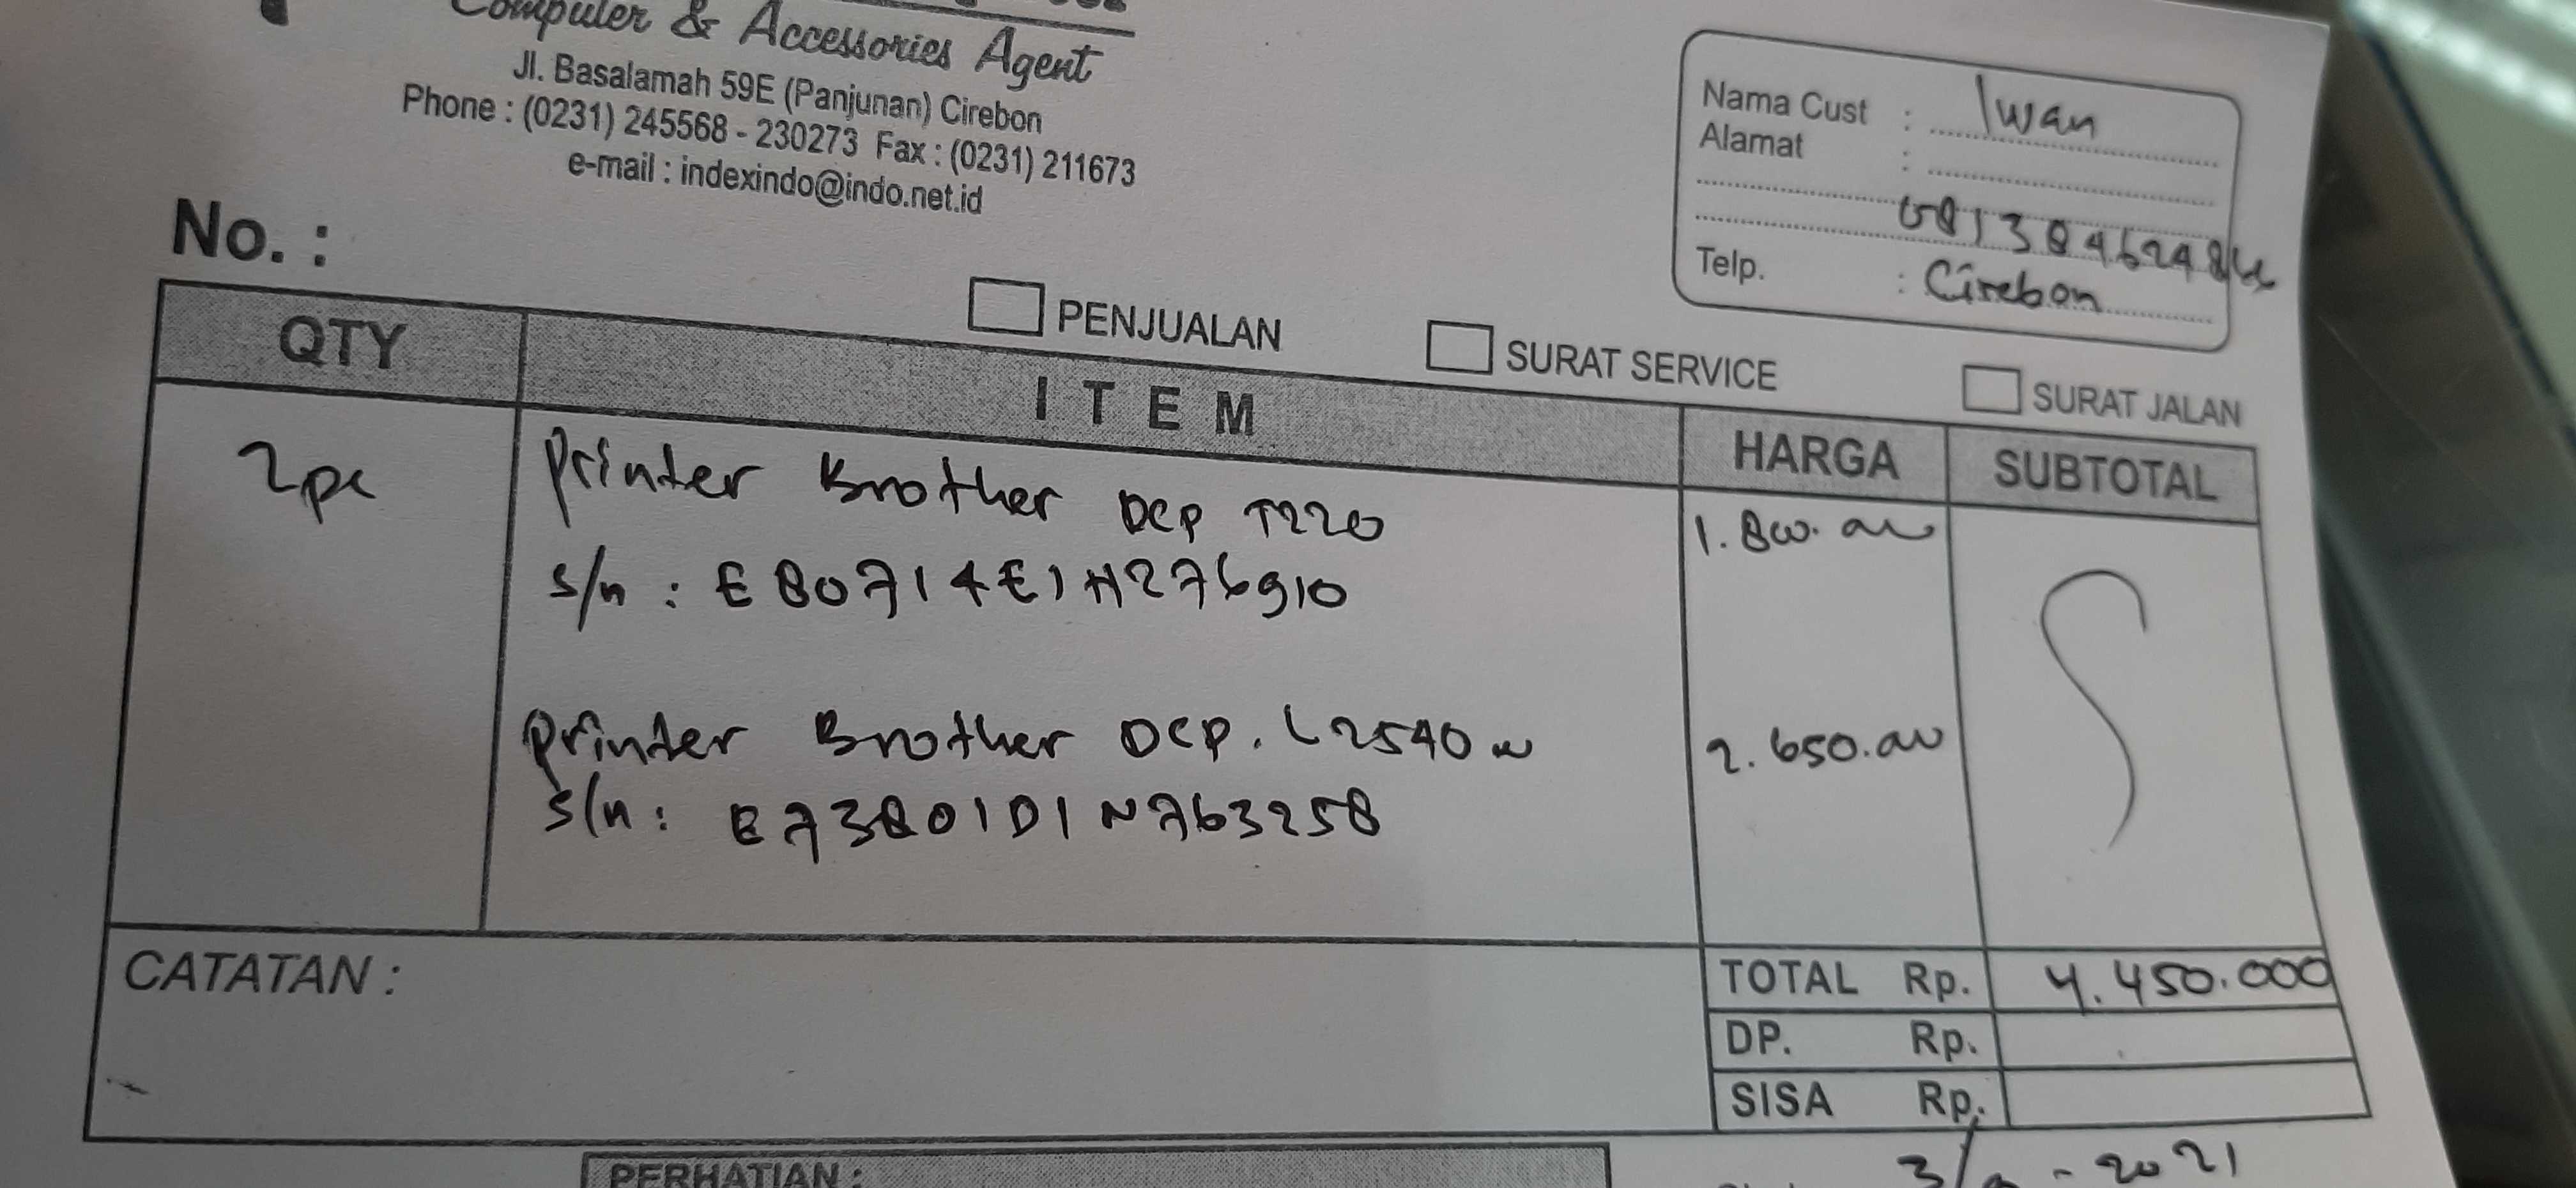 Computer & Accessories Agent
Jl. Basalamah 59E (Panjunan) Cirebon
Phone : (0231) 245568 - 230273 Fax : (0231) 211673
e-mail : indexindo@indo.net.id
Nama Cust : Iwan
Alamat :
Telp. : Cirebon
No. :
PENJUALAN
SURAT SERVICE
SURAT JALAN
QTY ITEM HARGA SUBTOTAL
2pc Printer Brother DCP T220 1.800.000
s/n : E80714E1H276910
Printer Brother DCP. L2540 w 2.650.000
s/n : E73801D1N763258
CATATAN :
TOTAL Rp. 4.450.000
DP. Rp.
SISA Rp.
PERHATIAN :
2021